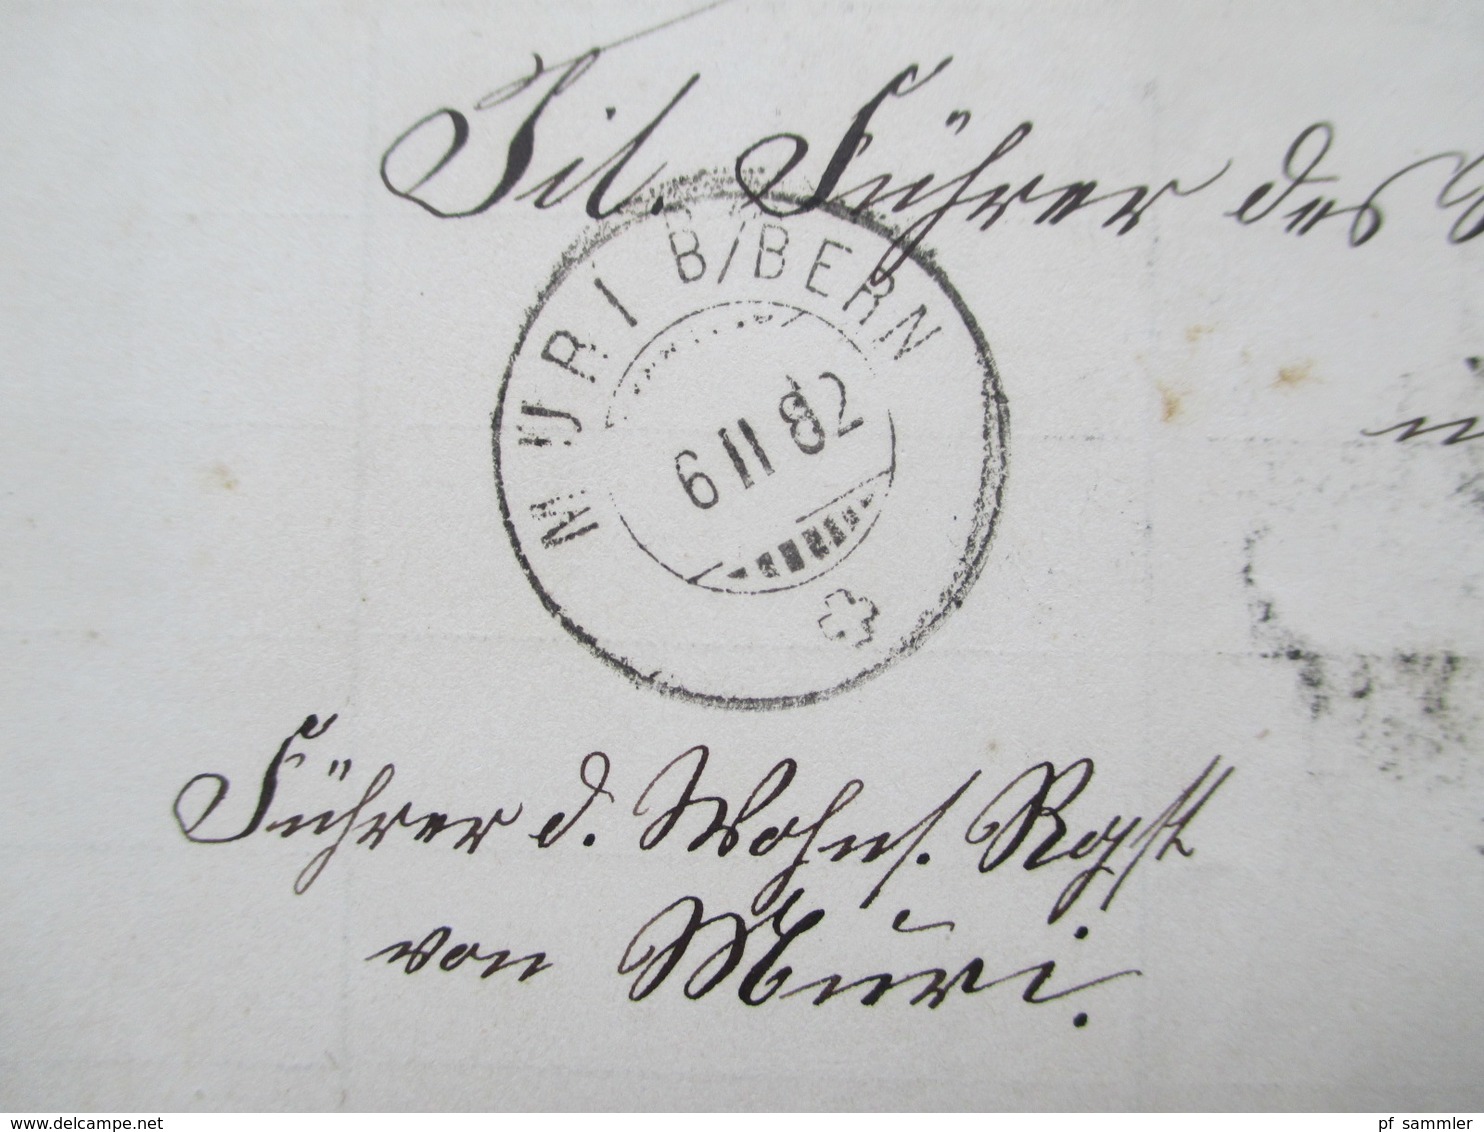 Tit. Führer des
MURI B/BERN
6 II 82
Führer d. Wohns. Rgst
von Muri.
www.delcampe.net
pf_sammler